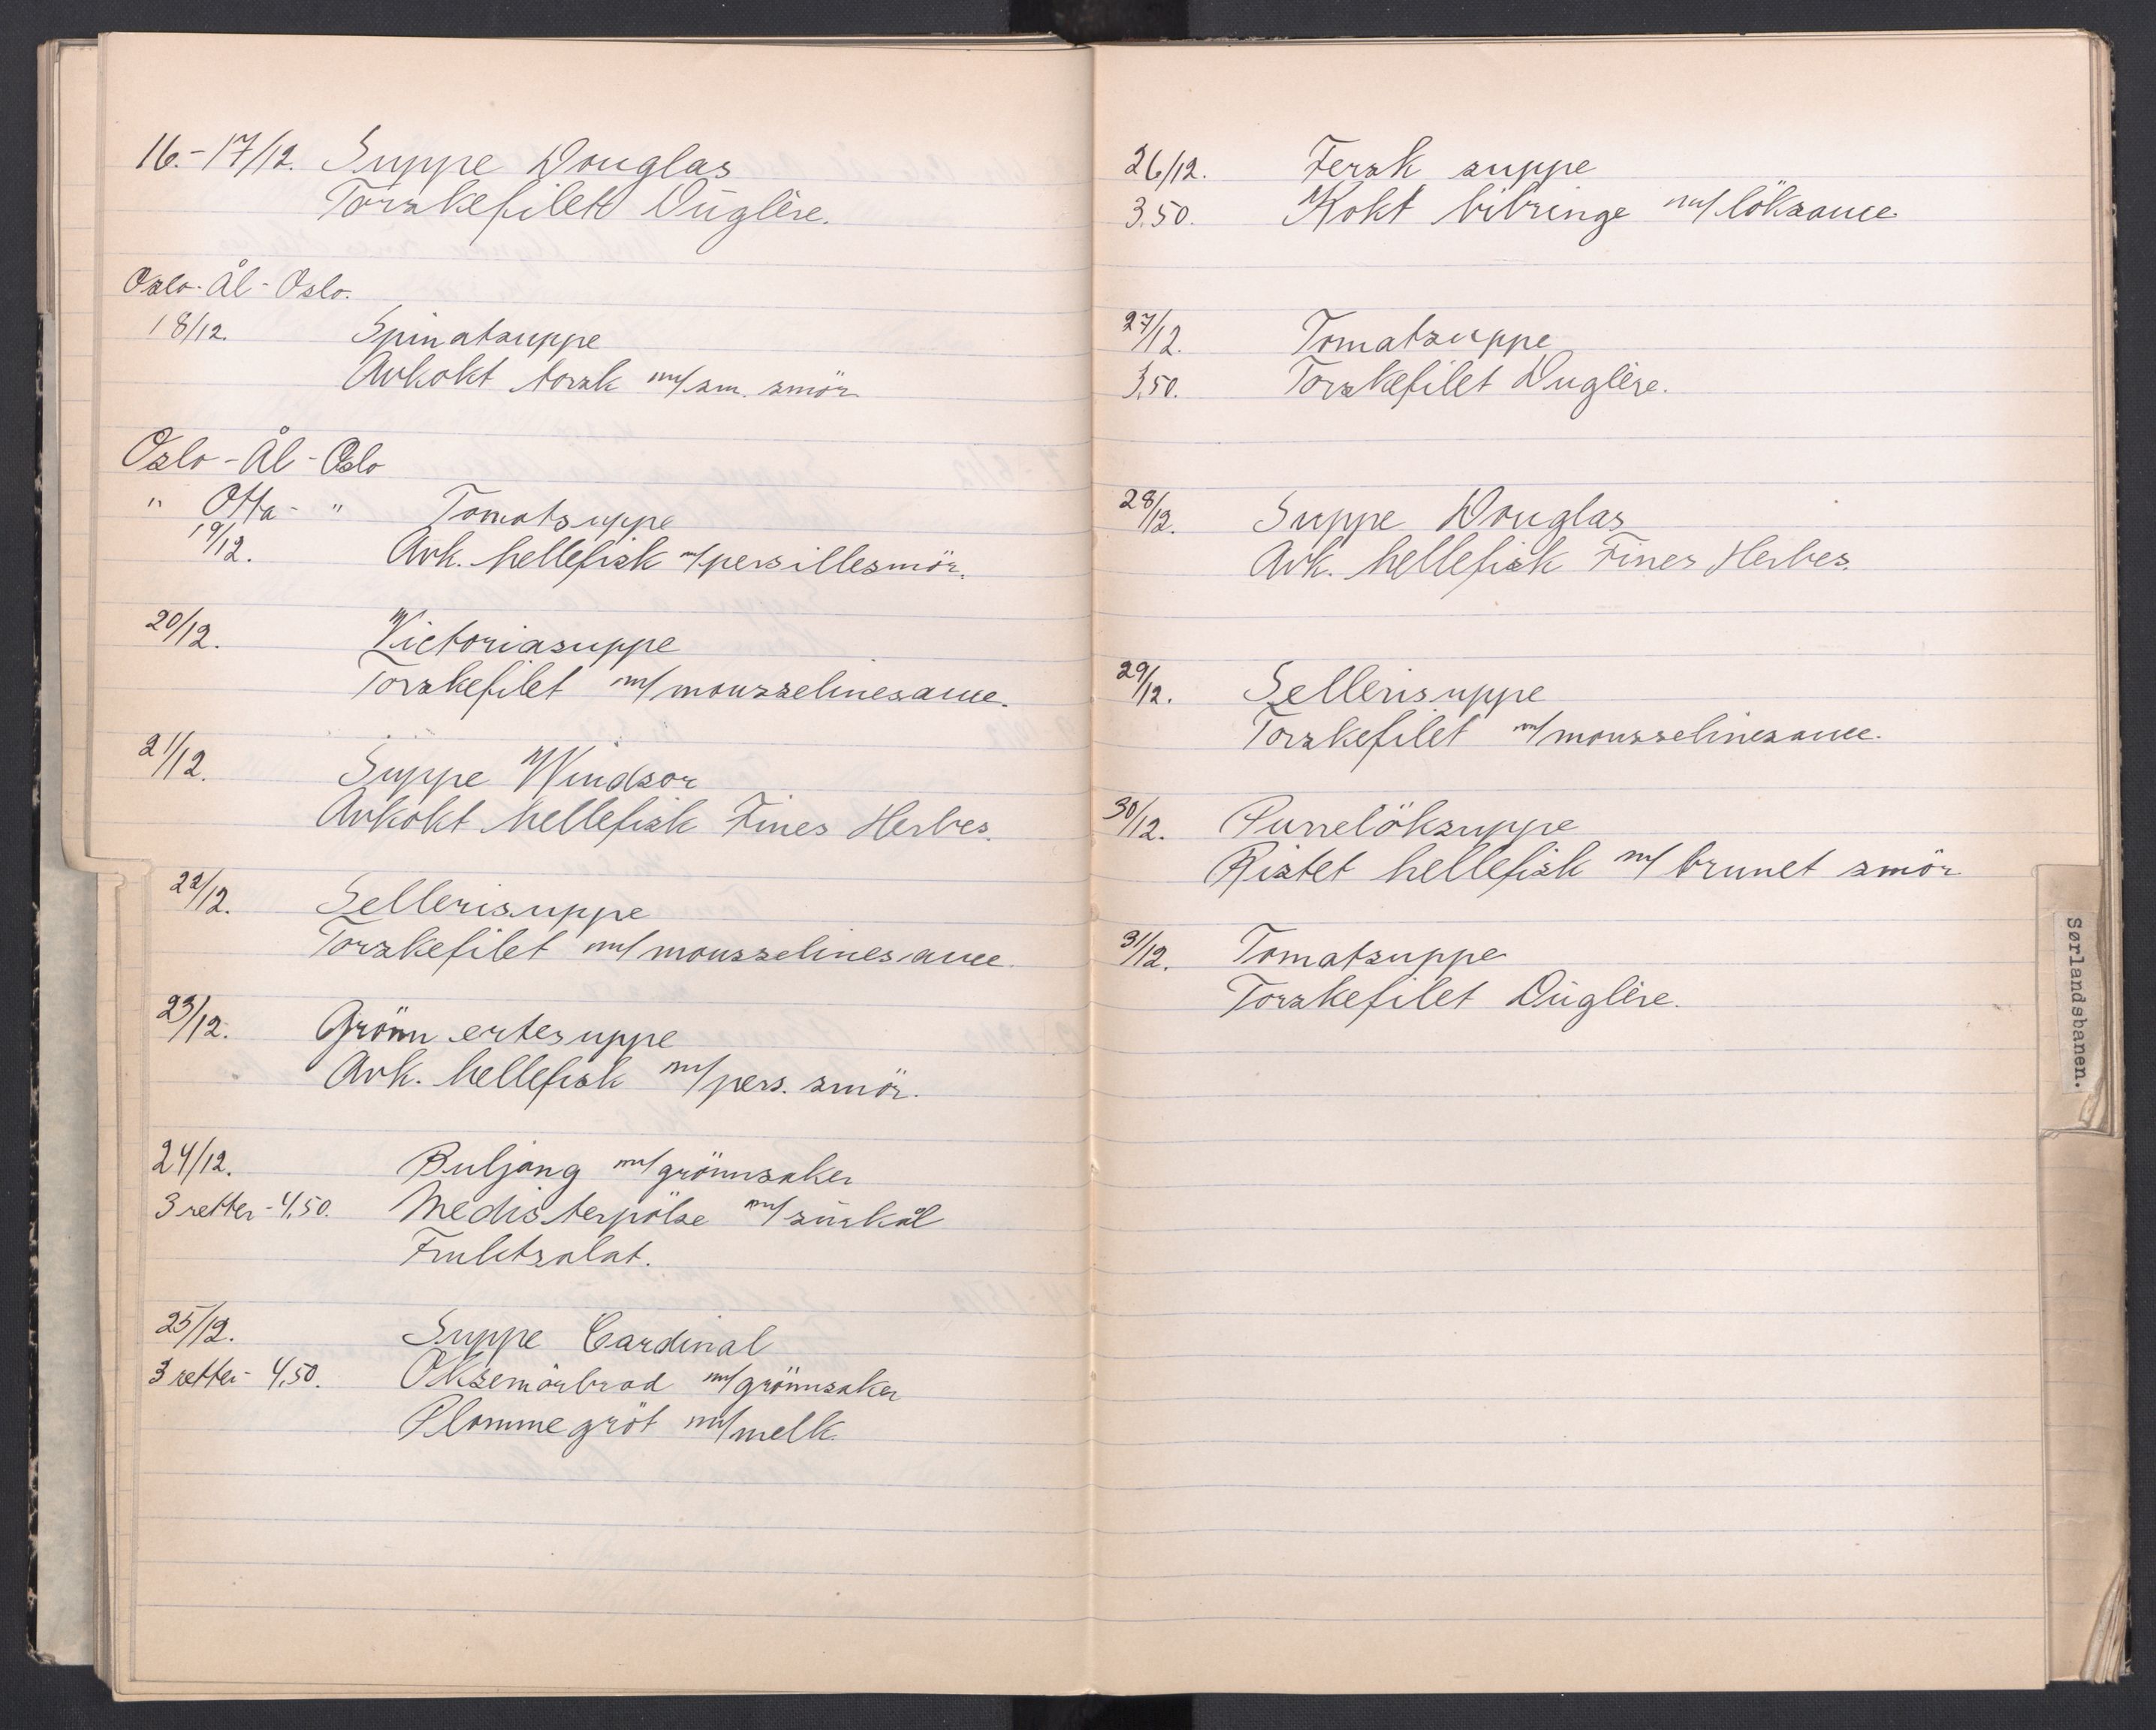 16.-17/12. Suppe Douglas
Torskefilett Duglère.
Oslo-Ål-Oslo.
18/12. Spinatsuppe
Avkokt torsk m/sm. smör
Oslo-Ål-Oslo
" Otta- " Tomatsuppe
19/12. Avk. hellefisk m/persillesmör.
20/12. Victoriasuppe
Torskefilet m/mousselinesauce.
21/12. Suppe Windsor
Avkokt hellefisk Fines Herbes.
22/12. Sellerisuppe
Torskefilet m/mousselinesauce
23/12. Grönn ertesuppe
Avk. hellefisk m/pers. smör.
24/12. Buljong m/grönnsaker
3 retter-4,50. Medisterpölse m/surkål
Fruktsalat.
25/12. Suppe Cardinal
3 retter- 4,50. Oksemörbrad m/grönnsaker
Plommegröt m/melk.
26/12. Fersk suppe
3.50. Kokt bibringe m/löksauce
27/12. Tomatsuppe
3,50. Torskefilet Duglère.
28/12. Suppe Douglas
Avk. hellefisk Fines Herbes.
29/12. Sellerisuppe
Torskefilet m/mousselinesauce.
30/12. Purrelöksuppe
Ristet hellefisk m/ brunet smör
31/12. Tomatsuppe
Torskefilet Duglère.
Sørlandsbanen.